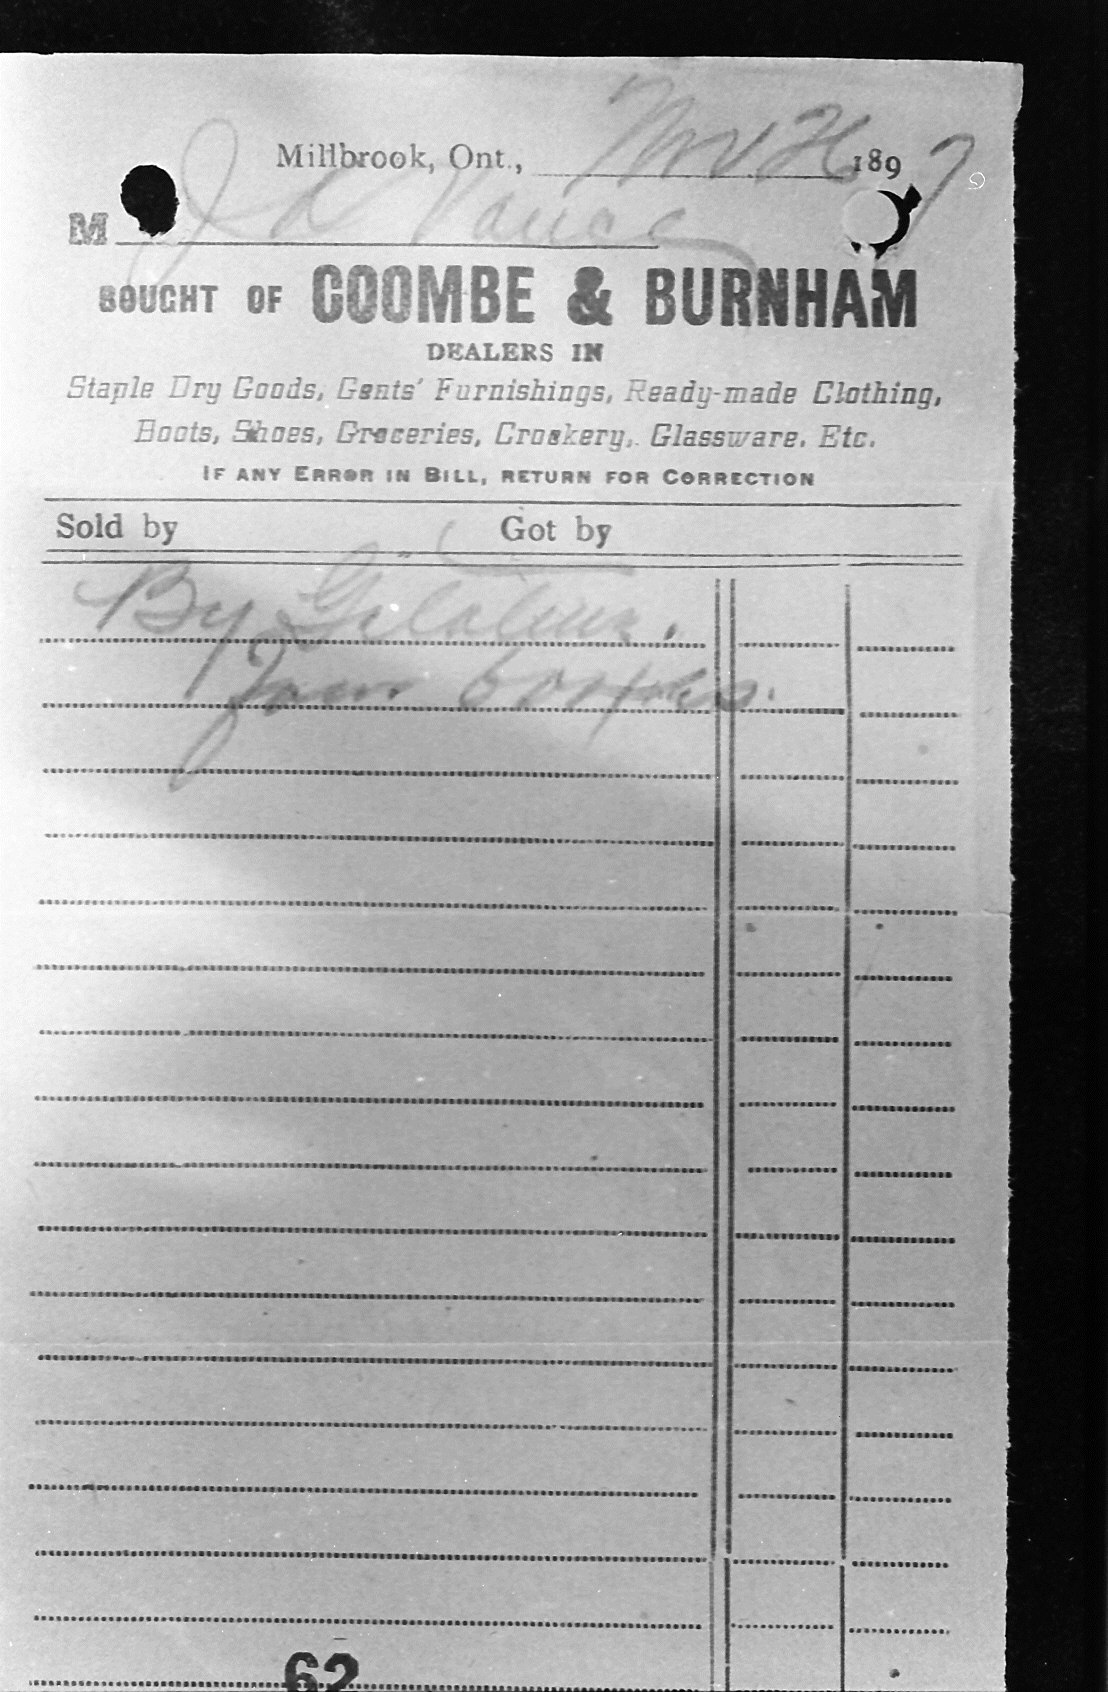 Millbrook, Ont., Nov 26 1897
M J A Vance
BOUGHT OF COOMBE & BURNHAM
DEALERS IN
Staple Dry Goods, Gents' Furnishings, Ready-made Clothing,
Boots, Shoes, Groceries, Crockery, Glassware, Etc.
IF ANY ERROR IN BILL, RETURN FOR CORRECTION
Sold by Got by
By Gelatine.
four boxes.
62